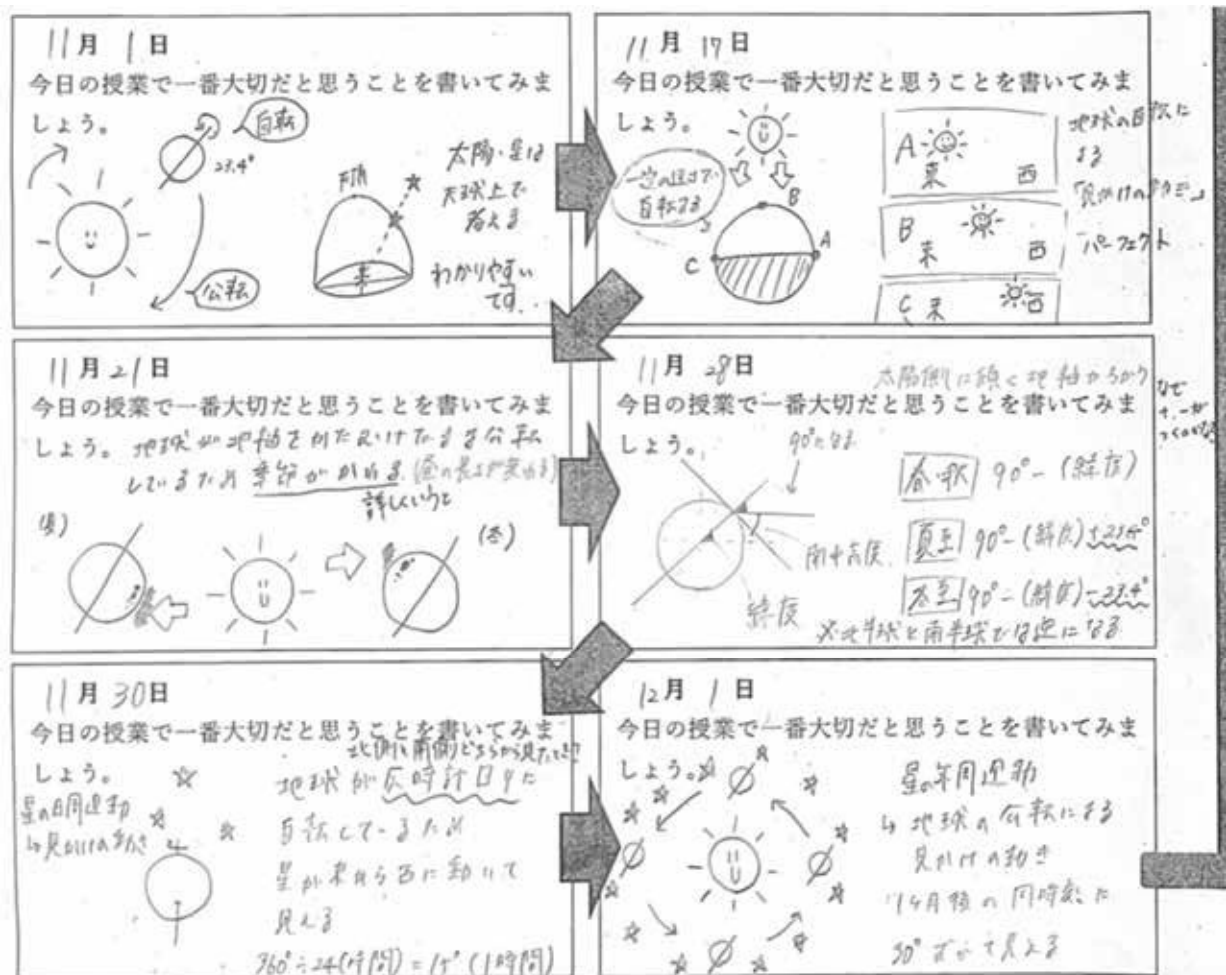 11月 1日
今日の授業で一番大切だと思うことを書いてみま
しょう。
自転
23.4°
公転
天頂
太陽・星は
天球上で
考える
わかりやすい
です..
11月 17日
今日の授業で一番大切だと思うことを書いてみま
しょう。
一定の速さで
自転する
B
A
C
A
東 西
B
東 西
C 東 西
地球の自転に
よる
「見かけの動き」
パーフェクト
11月 21日
今日の授業で一番大切だと思うことを書いてみま
しょう。地球が地軸をかたむけたまま公転
しているため季節がかわる(昼の長さが変わる)
詳しくいうと
(夏)
(冬)
11月 28日
太陽側に傾く地軸だから
なぜ
今日の授業で一番大切だと思うことを書いてみま
しょう。
90°になる
南中高度
緯度
春・秋 90°-(緯度)
夏至 90°-(緯度)+23.4°
冬至 90°-(緯度)-23.4°
※北半球と南半球では逆になる
11月 30日
今日の授業で一番大切だと思うことを書いてみま
北側と南側どちらから見たとき?
しょう。
星の日周運動
↳見かけの動き
地球が反時計回りに
自転しているため
星が東から西に動いて
見える
360°÷24(時間)=15°(1時間)
12月 1日
今日の授業で一番大切だと思うことを書いてみま
しょう。
星の年周運動
↳地球の公転による
見かけの動き
1ヶ月後の同時刻に
30°ずれて見える